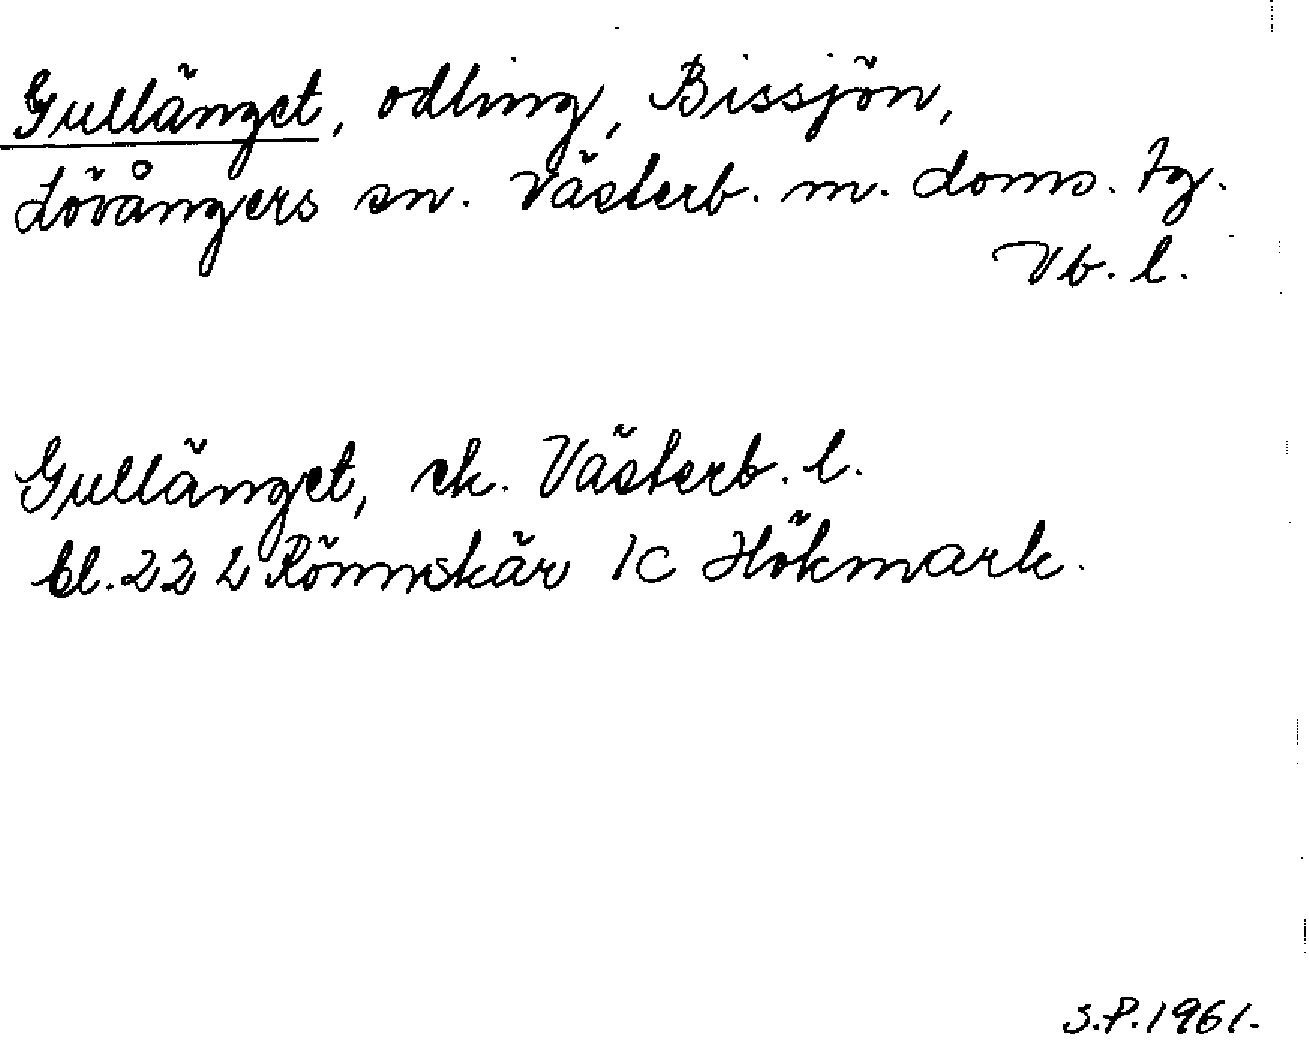 Gullänget, odling, Bissjön,
Lövångers sn. Västerb. m. doms. tg.
Vb. l.
Gullänget, ek. Västerb. l.
bl. 22 L Rönnskär 1c Hökmark.
S.P. 1961.